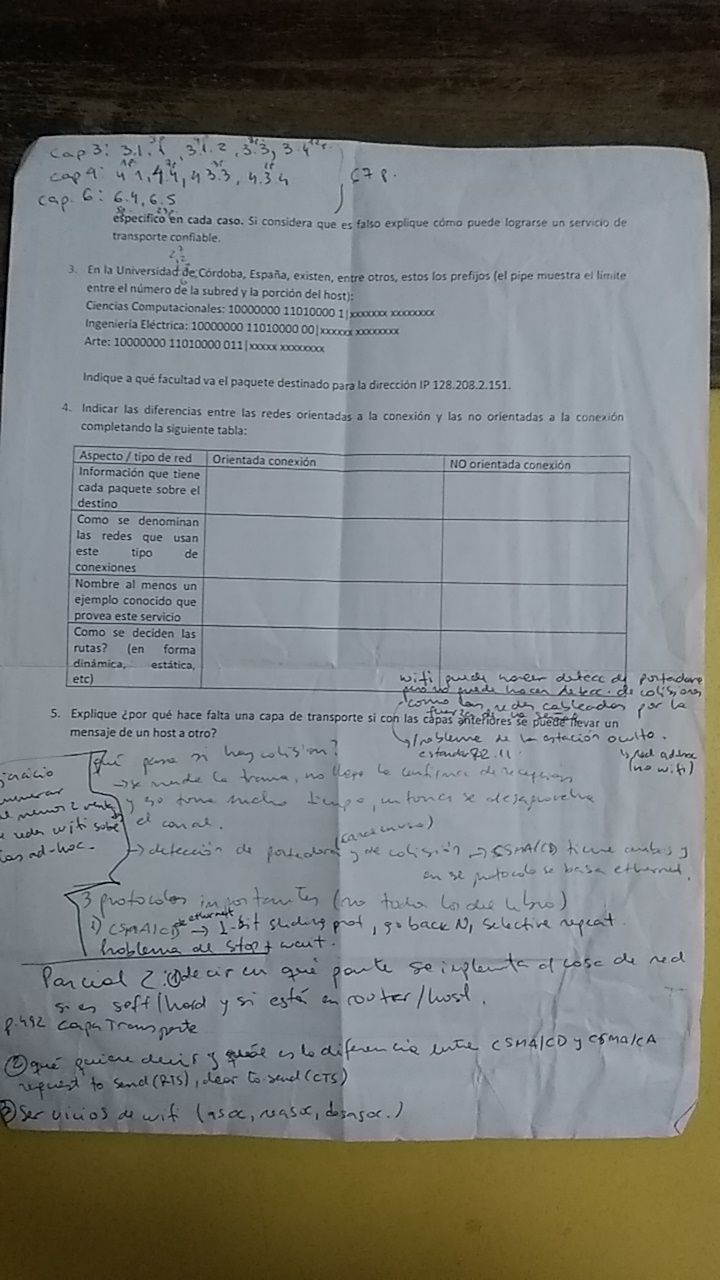 cap 3: 3.1.1, 3.1.2, 3.3, 3.4
cap 4: 4.1, 4.4, 4.3.3, 4.3.4 67 p.
cap. 6: 6.4, 6.5
específico en cada caso. Si considera que es falso explique cómo puede lograrse un servicio de
transporte confiable.
3. En la Universidad de Córdoba, España, existen, entre otros, estos los prefijos (el pipe muestra el límite
entre el número de la subred y la porción del host):
Ciencias Computacionales: 10000000 11010000 1|xxxxxxx xxxxxxxx
Ingeniería Eléctrica: 10000000 11010000 00|xxxxxx xxxxxxxx
Arte: 10000000 11010000 011|xxxxx xxxxxxxx
Indique a qué facultad va el paquete destinado para la dirección IP 128.208.2.151.
4. Indicar las diferencias entre las redes orientadas a la conexión y las no orientadas a la conexión
completando la siguiente tabla:
Aspecto / tipo de red Orientada conexión NO orientada conexión
Información que tiene
cada paquete sobre el
destino
Como se denominan
las redes que usan
este tipo de
conexiones
Nombre al menos un
ejemplo conocido que
provea este servicio
Como se deciden las
rutas? (en forma
dinámica, estática,
etc)
wifi puede hacer detecc de portadora
pero no puede hacer detecc. de colisiones
como las redes cableadas por la
5. Explique ¿por qué hace falta una capa de transporte si con las capas anteriores se puede llevar un
mensaje de un host a otro?
problema de la estación oculta.
estandar 802.11
red ad-hoc
(no wifi)
qué pasa si hay colisión?
se manda la trama, no llega la confirmac de recepción
y eso toma mucho tiempo, entonces se desaprovecha
el canal.
al menos 2 ventajas
redes wifi sobre
las ad-hoc.
detección de portadora y de colisión → CSMA/CD tiene ambas y
en ese protocolo se basa ethernet.
3 protocolos importantes (no todo los del libro)
1) CSMA/CD de ethernet → 1-bit sliding prot, go back N, selective repeat.
Problema de stop & wait.
Parcial 2: ① decir en qué parte se implementa el cosa de red
si es soft/hard y si está en router/host.
p. 492 Capa Transporte
② qué quiere decir y cuál es la diferencia entre CSMA/CD y CSMA/CA
request to send (RTS), clear to send (CTS)
③ Servicios de wifi (asoc, reasoc, desasoc.)